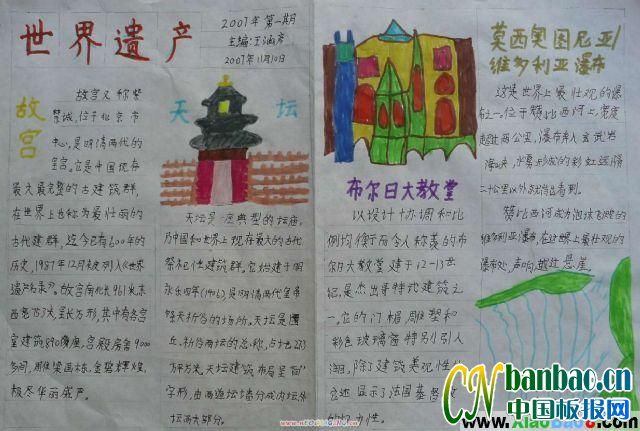 世界遗产
2007年第一期
主编:王涵彦
2007年11月10日
故宫
故宫又称紫
禁城,位于北京市
中心,是明清两代的
皇宫。它是中国现存
最大最完整的古建筑群,
在世界上也称为最壮丽的
古代建群,迄今已有600年的
历史,1987年12月被列入《世界
遗产名录》。故宫南北长961米东
西宽753米,呈长方形,其中有各宫
室建筑890幢座,宫殿房舍9000
多间,雕梁画栋,金碧辉煌,
极尽华丽威严。
天坛
天坛是一座典型的坛庙,
乃中国和世界上现存最大的古代
祭祀性建筑群。它始建于明
永乐四年(1906),是明清两代皇帝
祭天祈谷的场所。天坛是圜
丘、祈谷两坛的总称,占地273
万平方米。天坛建筑布局呈"回"
字形,由两道坛墙分成内坛外
坛两大部分。
布尔日大教堂
以设计协调和比
例均衡而令人称羡的布
尔日大教堂建于12-13世
纪,是杰出哥特式建筑之
一,它的门楣雕塑和
彩色玻璃窗特别引人
注目,除了建筑美观性的
论述显示了法国基督教
莫西奥图尼亚/
维多利亚瀑布
这是世界上最壮观的瀑
布之一。位于赞比西河上,宽度
超过两公里,瀑布奔入玄武岩
海峡,水雾形成的彩虹远隔
二十公里以外就能看到。
赞比西河成为泡沫飞溅的
维多利亚瀑布,在这世界上最壮观的
瀑布处,声响越过悬崖。
CN banbao.cn
中国板报网
www.XiaoBao8.com